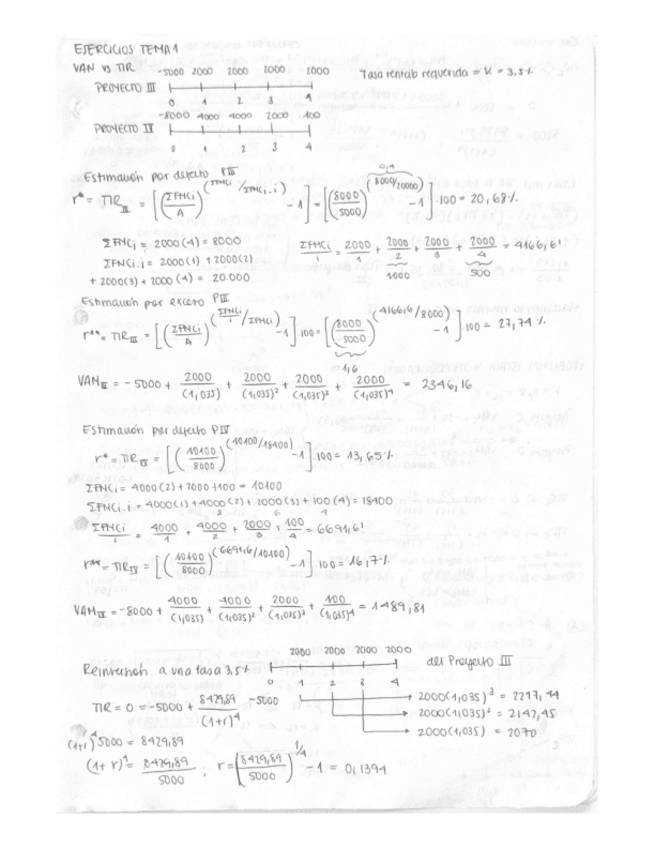 EJERCICIOS TEMA 1
VAN vs TIR -5000 2000 2000 2000 2000 Tasa rentab requerida = K = 3,5%
PROYECTO III
0 1 2 3 4
-8000 4000 4000 2000 100
PROYECTO IV
0 1 2 3 4
Estimación por defecto PIII
r* = TIR III = [(ΣFNCi / A)^(ΣFNCi / ΣFNCi.i) - 1] = [(8000 / 5000)^(8000/20000) - 1].100 = 20,68%
0,4
ΣFNCi = 2000(4) = 8000
ΣFNCi.i = 2000(1) + 2000(2)
+ 2000(3) + 2000(4) = 20.000
ΣFNCi / i = 2000 / 1 + 2000 / 2 + 2000 / 3 + 2000 / 4 = 4166,6'
1000 500
Estimación por exceso PIII
r** = TIR III = [(ΣFNCi / A)^(ΣFNCi/i / ΣFNCi) - 1].100 = [(8000 / -5000)^(4166,6/8000) - 1].100 = 27,74%
1,6
VAN III = -5000 + 2000 / (1,035) + 2000 / (1,035)² + 2000 / (1,035)³ + 2000 / (1,035)⁴ = 2346,16
Estimación por defecto PIV
r* = TIR IV = [(10100 / 8000)^(10100/18400) - 1].100 = 13,65%
ΣFNCi = 4000(2) + 2000 + 100 = 10100
ΣFNCi.i = 4000(1) + 4000(2) + 2000(3) + 100(4) = 18400
ΣFNCi / i = 4000 / 1 + 4000 / 2 + 2000 / 3 + 100 / 4 = 6691,6'
r** = TIR IV = [(10100 / 8000)^(6691,6/10100) - 1].100 = 16,7%
VAN IV = -8000 + 4000 / (1,035) + 4000 / (1,035)² + 2000 / (1,035)³ + 100 / (1,035)⁴ = 1489,81
2000 2000 2000 2000
Reinversión a una tasa 3,5% del Proyecto III
0 1 2 3 4
TIR = 0 = -5000 + 8429,89 / (1+r)⁴ -5000
2000(1,035)³ = 2217,44
2000(1,035)² = 2142,45
2000(1,035) = 2070
(1+r)⁴ 5000 = 8429,89
(1+r)⁴ = 8429,89 / 5000 ; r = (8429,89 / 5000)^1/4 - 1 = 0,1394